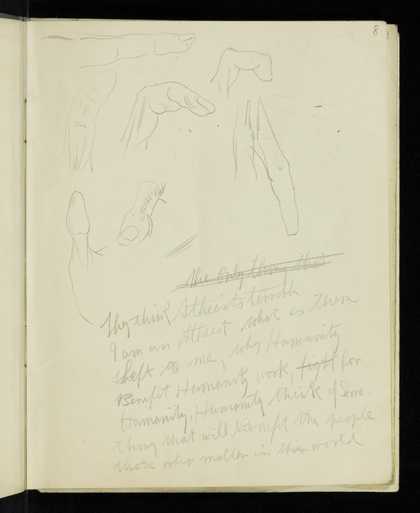 8
the only thing that
They think Atheists terrible
I am an Atheist what is there
left to me, why Humanity
Benefit Humanity, work, fight for
Humanity, Humanity think of some
thing that will benefit the people
those who matter in this world